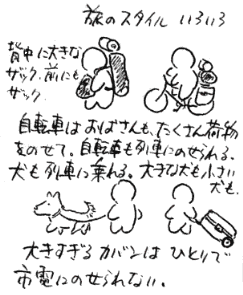 旅のスタイル いろいろ
背中に大きな
ザック、前にも
ザック。
自転車はおばさんも、たくさん荷物
をのせて、自転車も列車にのせられる。
犬も列車に乗れる。大きな犬も小さい
犬も。
大きすぎるカバンは ひとりで
市電にのせられない。